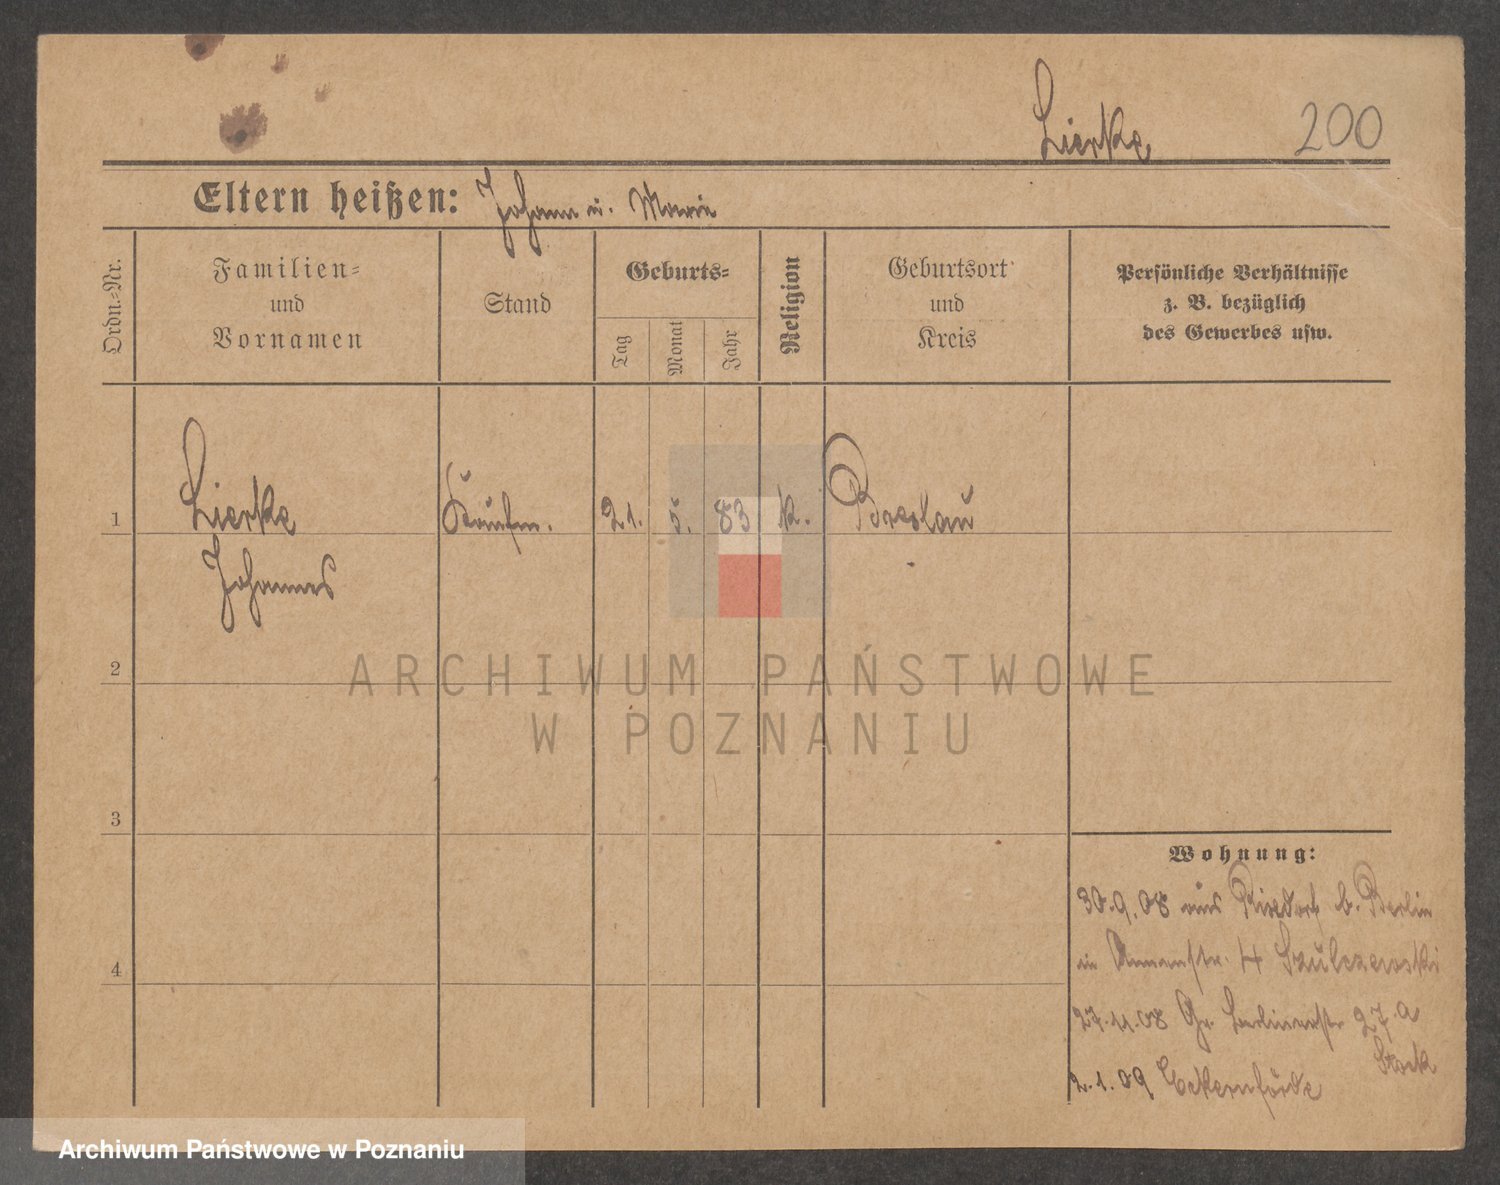 Lierke 200
Eltern heißen: Johann u. Marie
Ordn.-Nr.
Familien-
und
Vornamen
Stand
Geburts-
Tag
Monat
Jahr
Religion
Geburtsort
und
Kreis
Persönliche Verhältnisse
z. B. bezüglich
des Gewerbes usw.
1 Lierke Kaufm. 21. 5. 83 k. Breslau
Johannes
2
ARCHIWUM PAŃSTWOWE
W POZNANIU
3
Wohnung:
30.9.08 aus Rixdorf b. Berlin
in 4 Szulczewski
4
27.11.08 Gr. Berlinerstr. 27.a
2.1.09 Eckernförde
Archiwum Państwowe w Poznaniu